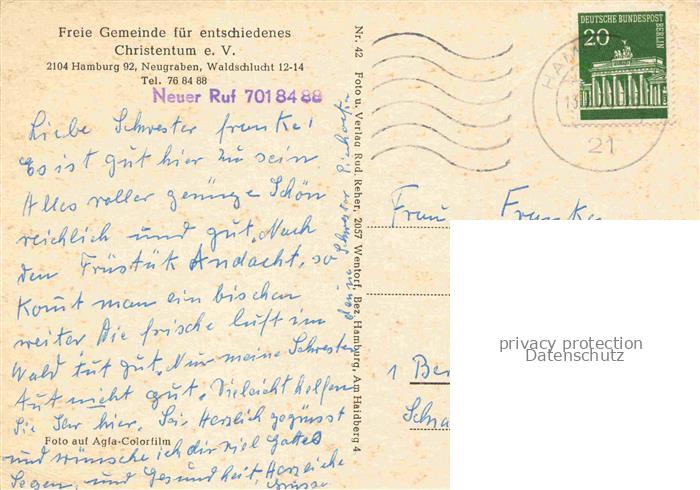 Freie Gemeinde für entschiedenes
Christentum e. V.
2104 Hamburg 92, Neugraben, Waldschlucht 12-14
Tel. 76 84 88
Neuer Ruf 701 84 88
Liebe Schwester franke!
Es ist gut hier zu sein
Alles voller genüge Schön
reichlich und gut. Nach
den Früstük Andacht, so
Komt man ein bischen
weiter Die frische luft im
Wald tut gut. Nur meine Schwester
Tut nicht gut. Vieleicht helfen
Sie Ihr hier. Sei Herzlich gegrüsst
und wünsche ich dir viel Gottes
Segen, und Gesundheit, Herzeiche
Grüsse
Foto auf Agfa-Colorfilm
Nr. 42 Foto u. Verlag Rud. Reher, 2057 Wentorf, Bez. Hamburg, Am Haidberg 4
DEUTSCHE BUNDESPOST
BERLIN
20
HAM
13
21
Frau Franke
1 Ber
Scha
privacy protection
Datenschutz